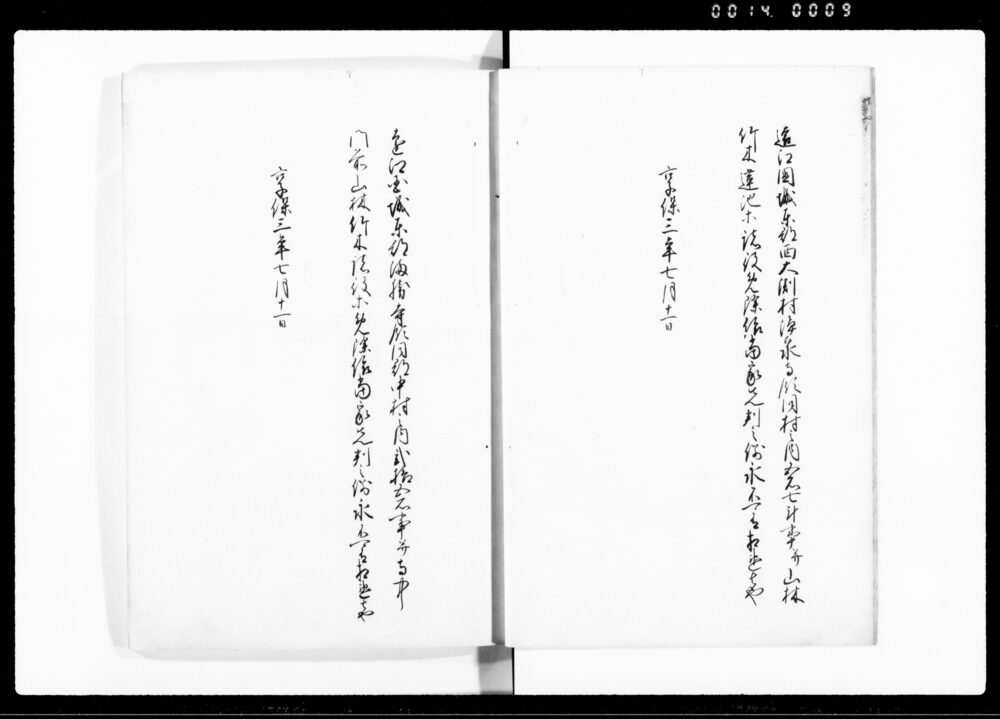 0014 0009
遠江国城東郡西大渕村浄泉寺領同村之内五石七斗事并山林
竹木蓮池等諸役免除依当家先判之例永不可有相違者也
享保三年七月十一日
遠江国城東郡海勝寺領同郡中村之内弐拾五石事并寺中
門前山林竹木諸役等免除依当家先判之例永不可有相違者也
享保三年七月十一日